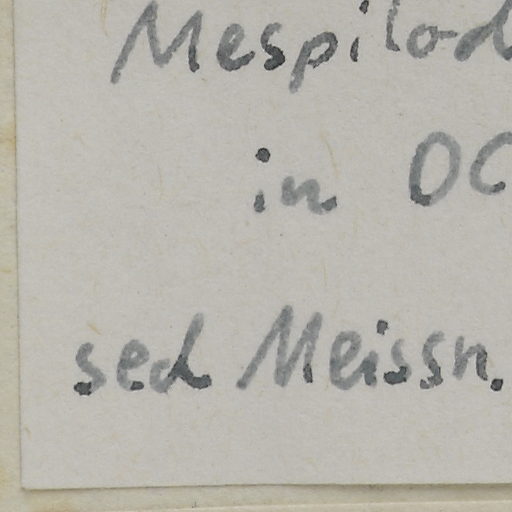 Mespilod
in DC
sed Meissn.